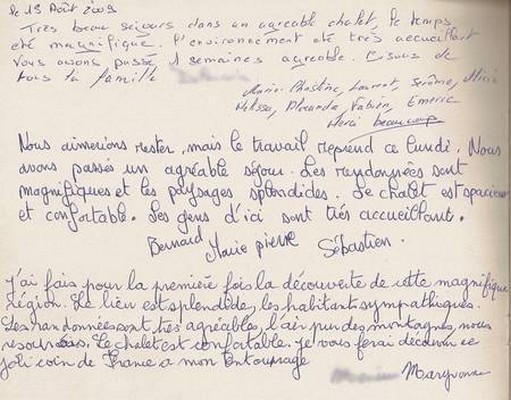 le 19 Août 2009
Très beau séjours dans un agréable chalet, le temps
été magnifique. l'environnement été très accueillant
Vous avons passé 1 semaines agréable. Bisous de
tous la famille
Marie-Christine, Laurent, Jérôme,
Melissa, Alexandra, Fabien, Emeric
Merci beaucoup
Nous aimerions rester, mais le travail reprend ce lundi. Nous
avons passés un agréable séjour. Les randonnées sont
magnifiques et les paysages splendides. Le chalet est spacieux
et confortable. Les gens d'ici sont très accueillant.
Bernard Marie pierre Sébastien.
J'ai fais pour la première fois la découverte de cette magnifique
région. Le lieu est splendide, les habitant sympathiques.
Les randonnées sont très agréables, l'air pur des montagnes, nous
. Le chalet est confortable. je vous ferai découvrir ce
joli coin de France a mon Entourage
Maryvonne